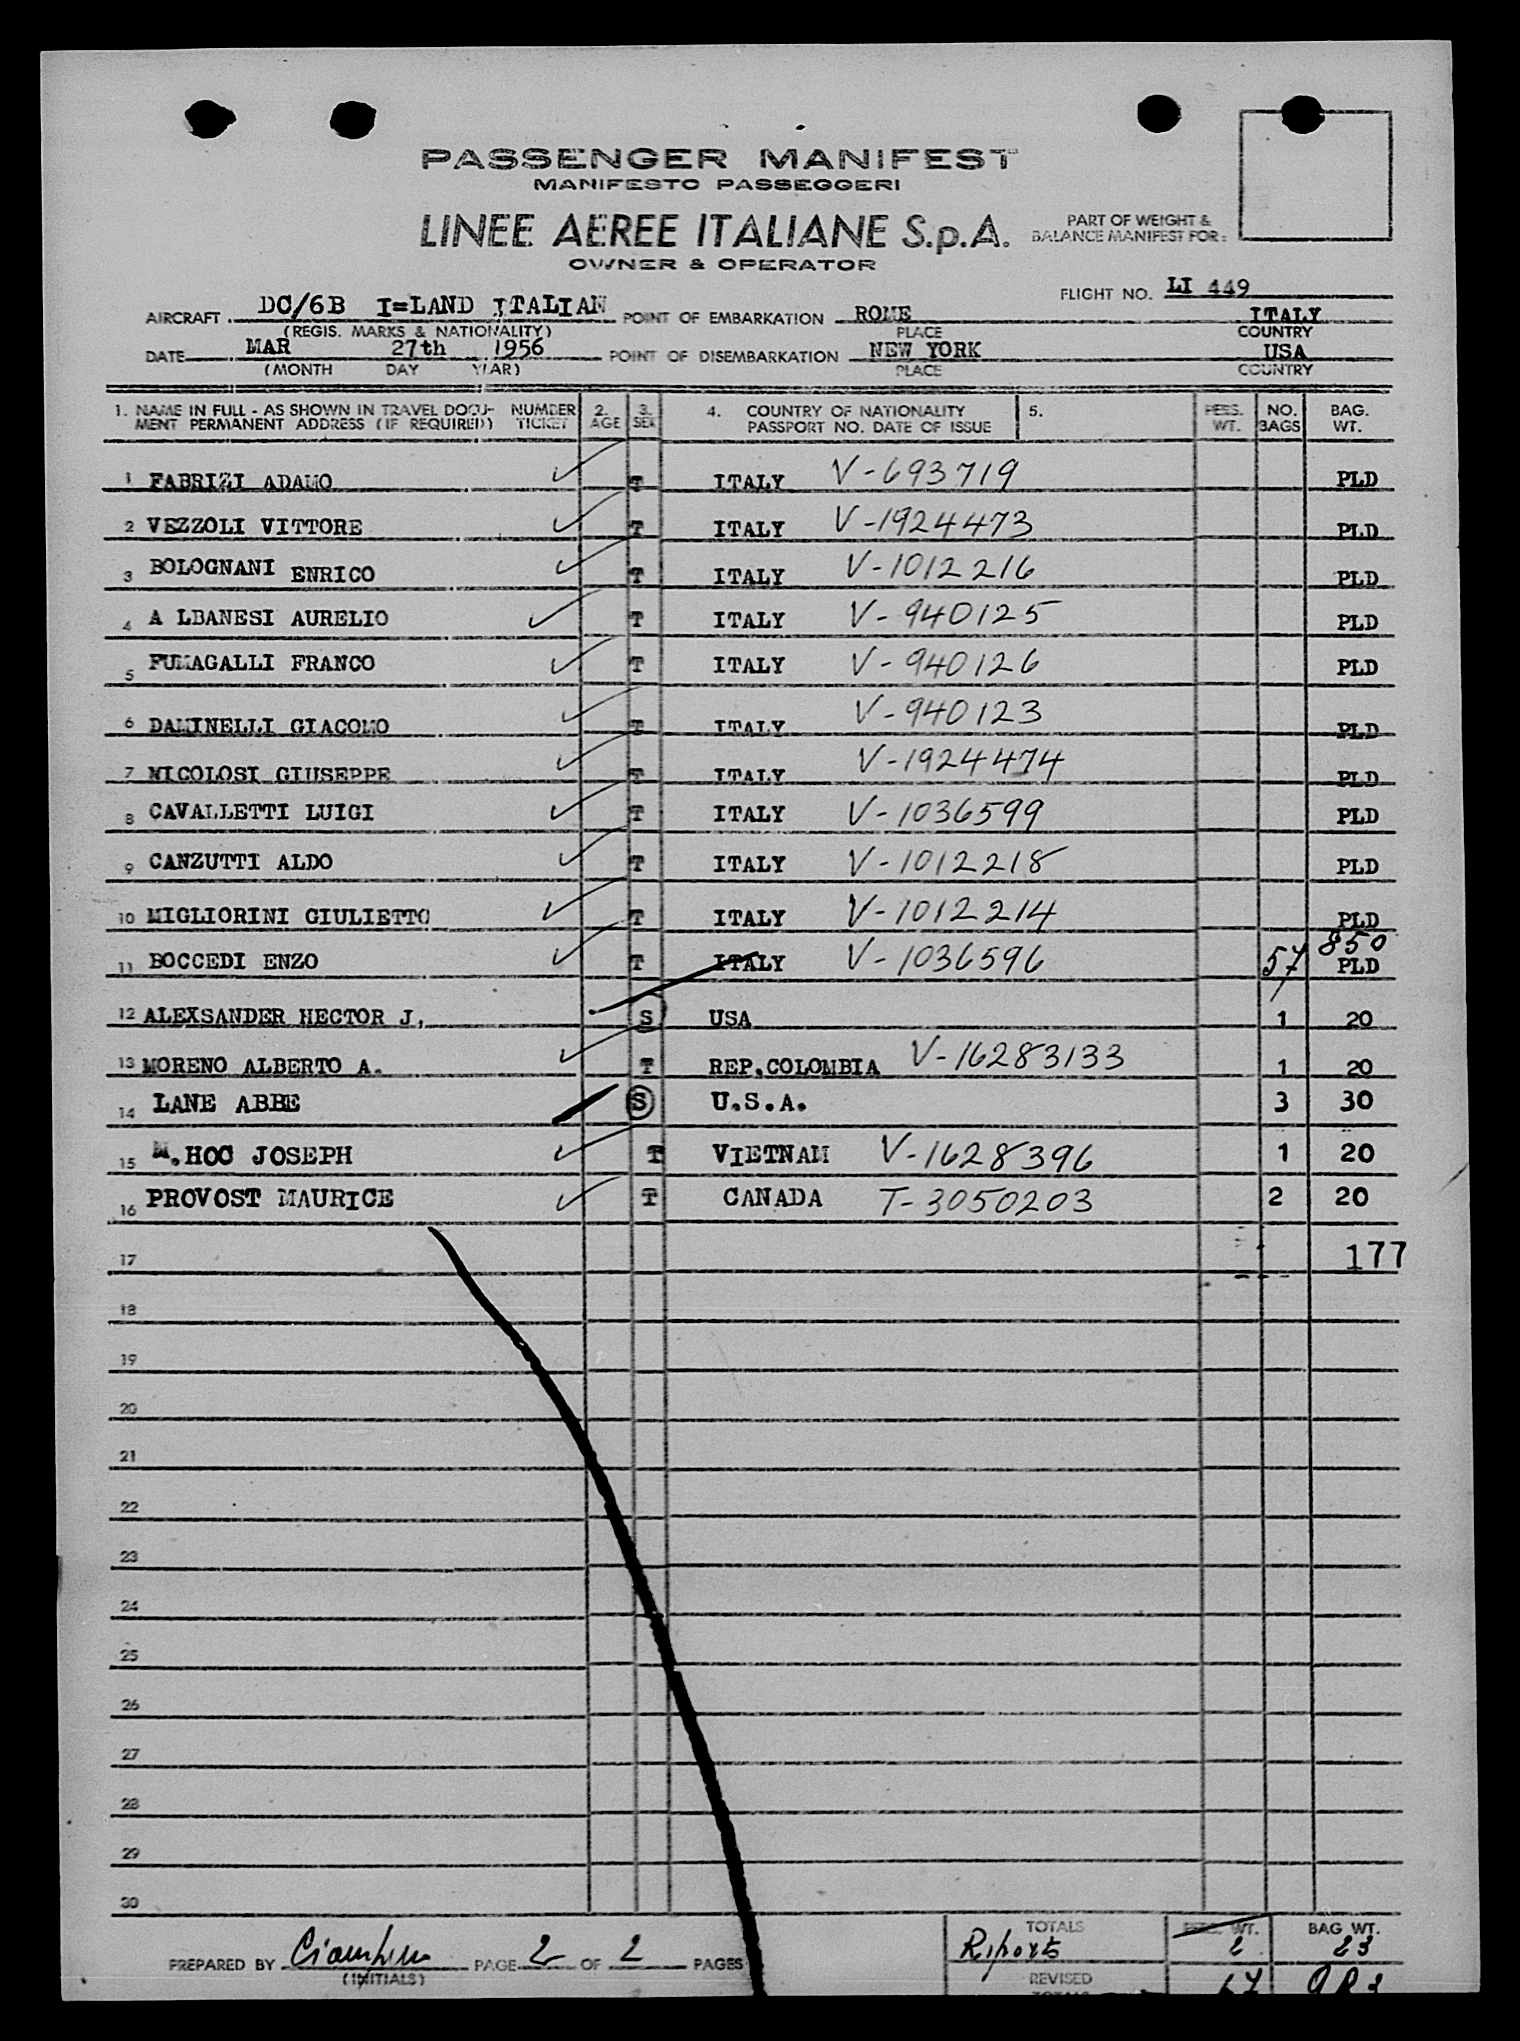 PASSENGER MANIFEST
MANIFESTO PASSEGGERI
LINEE AEREE ITALIANE S.p.A.
OWNER & OPERATOR
PART OF WEIGHT &
BALANCE MANIFEST FOR:
FLIGHT NO. LI 449
AIRCRAFT DC/6B I=LAND ITALIAN POINT OF EMBARKATION ROME ITALY
(REGIS. MARKS & NATIONALITY) PLACE COUNTRY
DATE MAR 27th 1956 POINT OF DISEMBARKATION NEW YORK USA
(MONTH DAY YEAR) PLACE COUNTRY
1. NAME IN FULL - AS SHOWN IN TRAVEL DOCU- NUMBER 2. 3. 4. COUNTRY OF NATIONALITY 5. PERS. NO. BAG.
MENT PERMANENT ADDRESS (IF REQUIRED) TICKET AGE SEX PASSPORT NO. DATE OF ISSUE WT. BAGS WT.
1 FABRIZI ADAMO T ITALY V-693719 PLD
2 VEZZOLI VITTORE T ITALY V-1924473 PLD
3 BOLOGNANI ENRICO T ITALY V-1012216 PLD
4 A LBANESI AURELIO T ITALY V-940125 PLD
5 FUMAGALLI FRANCO T ITALY V-940126 PLD
6 DAMINELLI GIACOMO T ITALY V-940123 PLD
7 NICOLOSI GIUSEPPE T ITALY V-1924474 PLD
8 CAVALLETTI LUIGI T ITALY V-1036599 PLD
9 CANZUTTI ALDO T ITALY V-1012218 PLD
10 MIGLIORINI GIULIETTO T ITALY V-1012214 PLD
11 BOCCEDI ENZO T ITALY V-1036596 57 850 PLD
12 ALEXSANDER HECTOR J, S USA 1 20
13 MORENO ALBERTO A. T REP,COLOMBIA V-16283133 1 20
14 LANE ABBE S U.S.A. 3 30
15 M.HOC JOSEPH T VIETNAM V-1628396 1 20
16 PROVOST MAURICE T CANADA T-3050203 2 20
17 177
18
19
20
21
22
23
24
25
26
27
28
29
30
TOTALS PERS. WT. BAG WT.
Riporto 2 23
PREPARED BY PAGE 2 OF 2 PAGES
(INITIALS)
REVISED
TOTALS